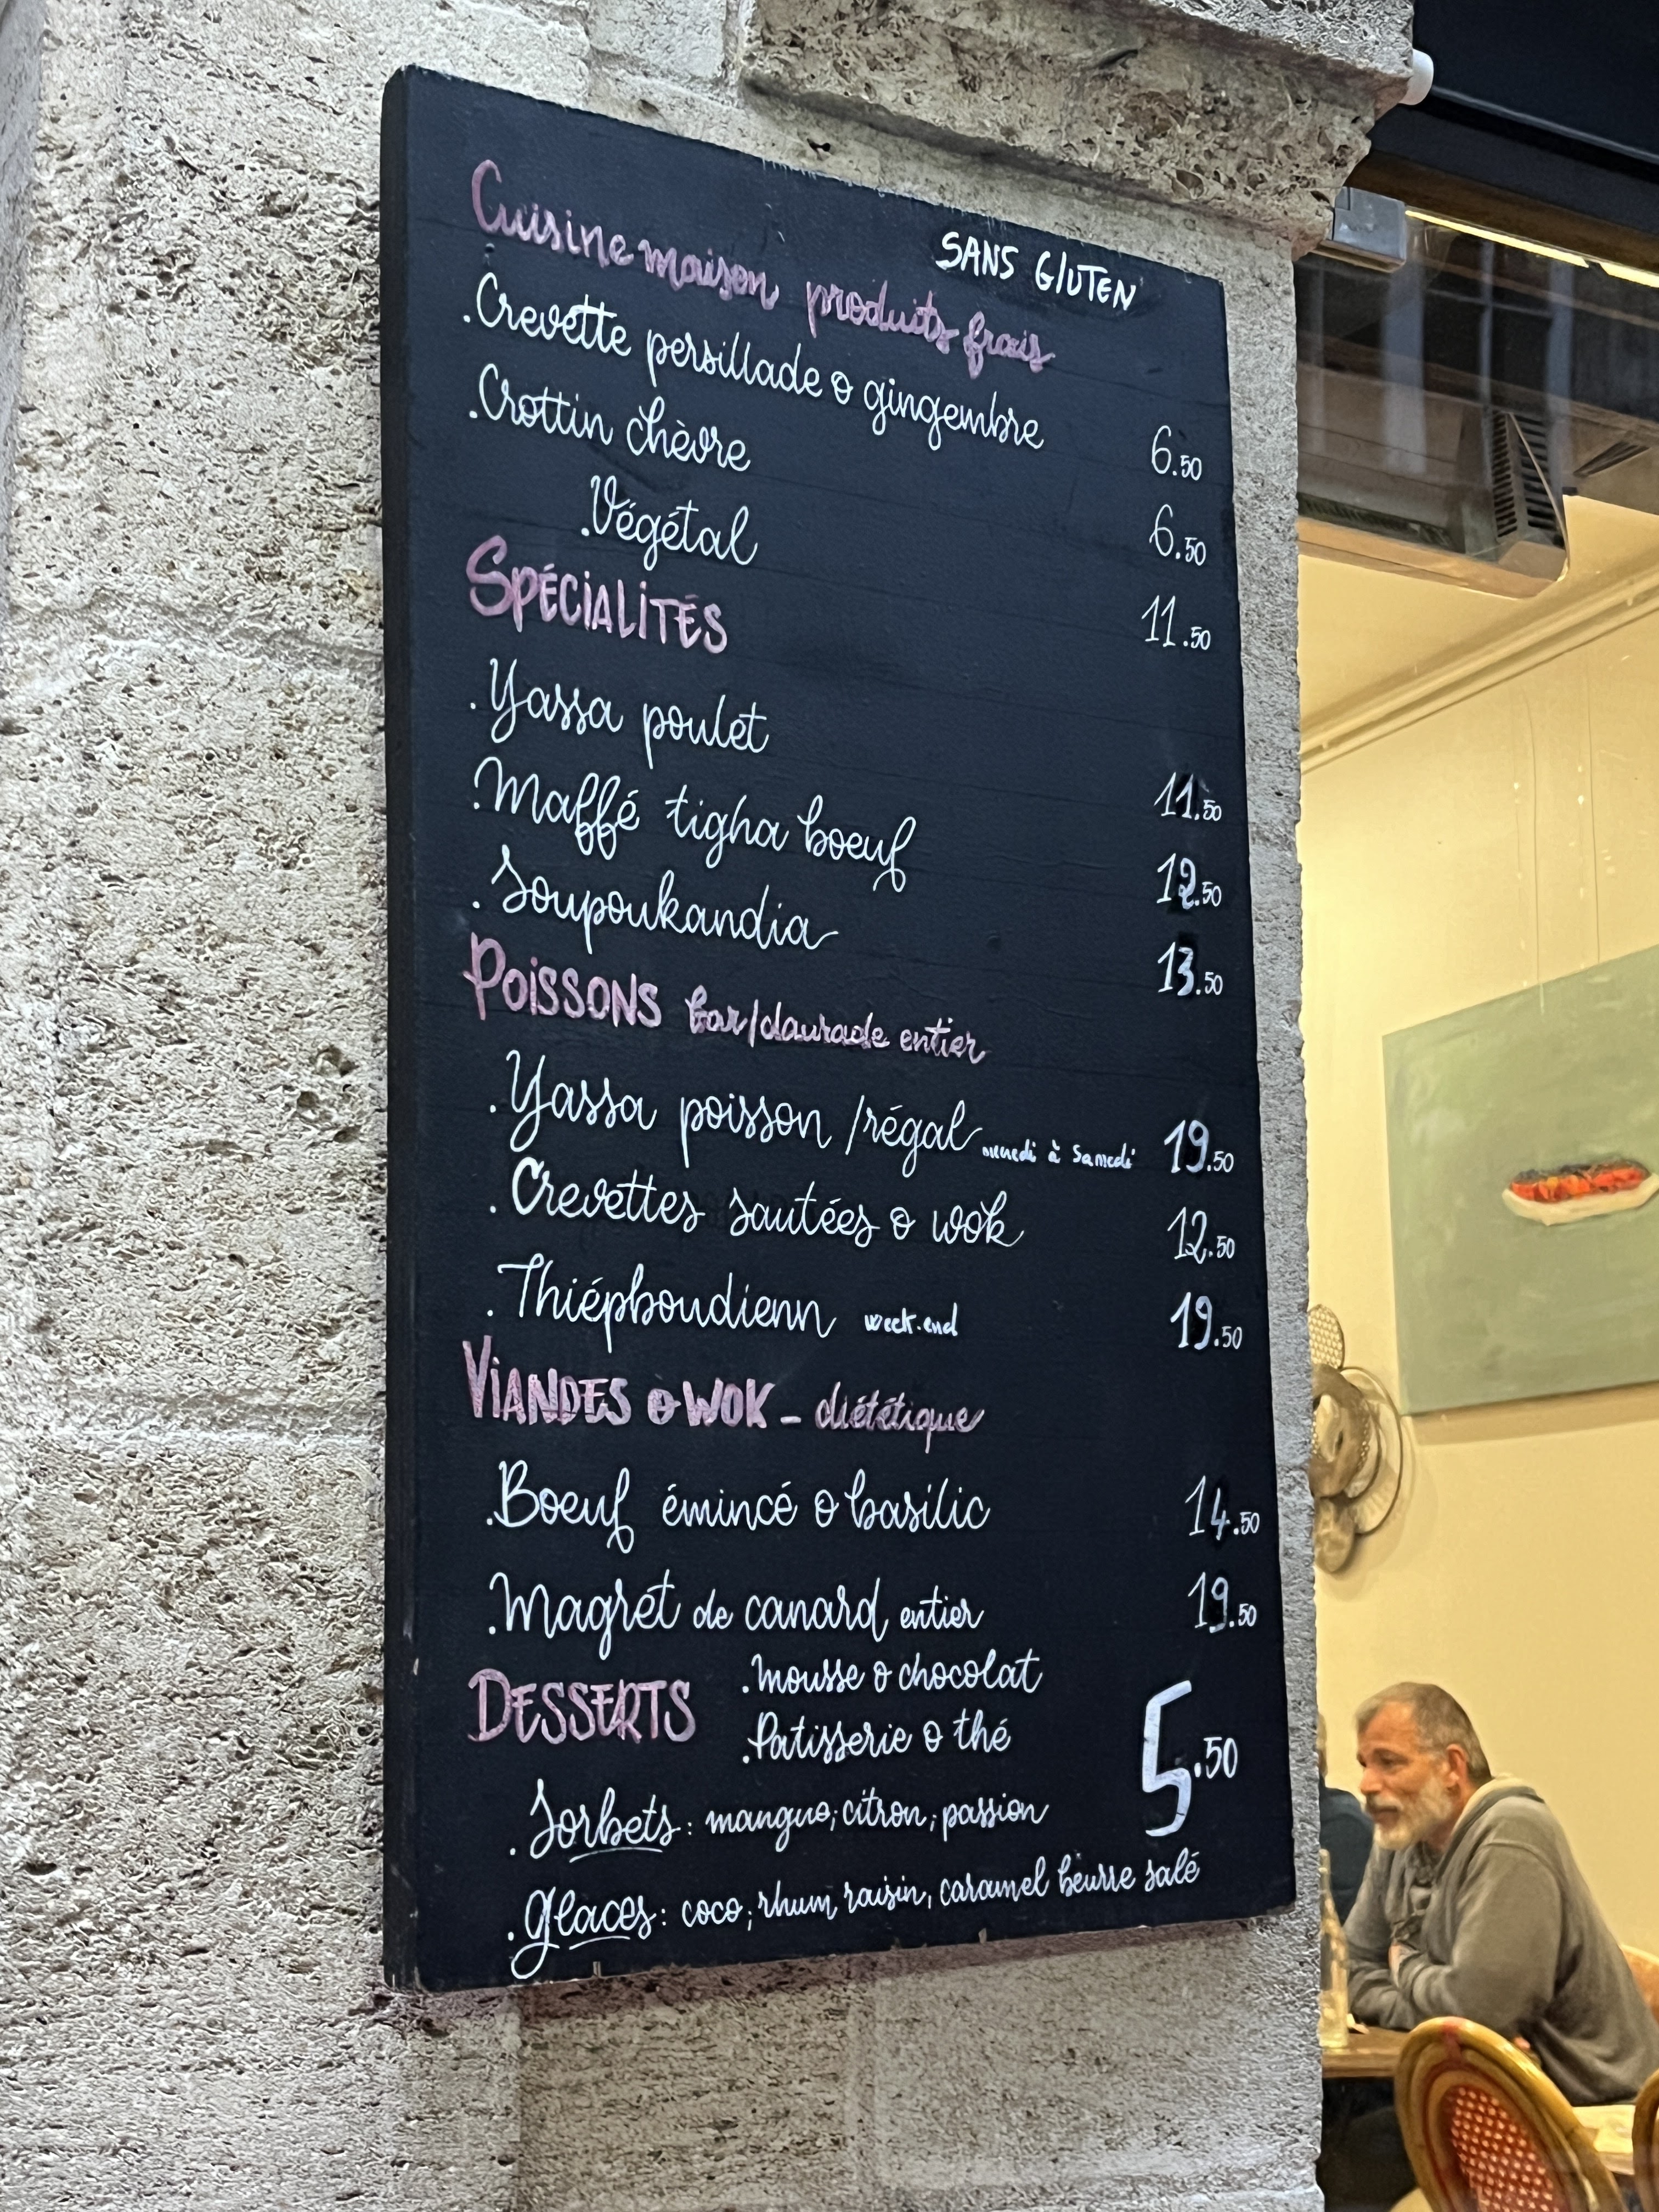 SANS GLUTEN
Cuisine maison produits frais
.Crevette persillade & gingembre 6.50
.Crottin chèvre 6.50
.Végétal 11.50
SPÉCIALITÉS
.Yassa poulet 11.50
.Maffé tigha boeuf 12.50
.Soupoukandia 13.50
POISSONS bar/daurade entier
.Yassa poisson /régal mercredi à Samedi 19.50
.Crevettes sautées & wok 12.50
.Thiépboudienn week.end 19.50
VIANDES & WOK - diététique
.Boeuf émincé & basilic 14.50
.Magret de canard entier 19.50
DESSERTS .mousse & chocolat
.Patisserie & thé 5.50
.Sorbets: mangue, citron, passion
.glaces: coco, rhum raisin, caramel beurre salé